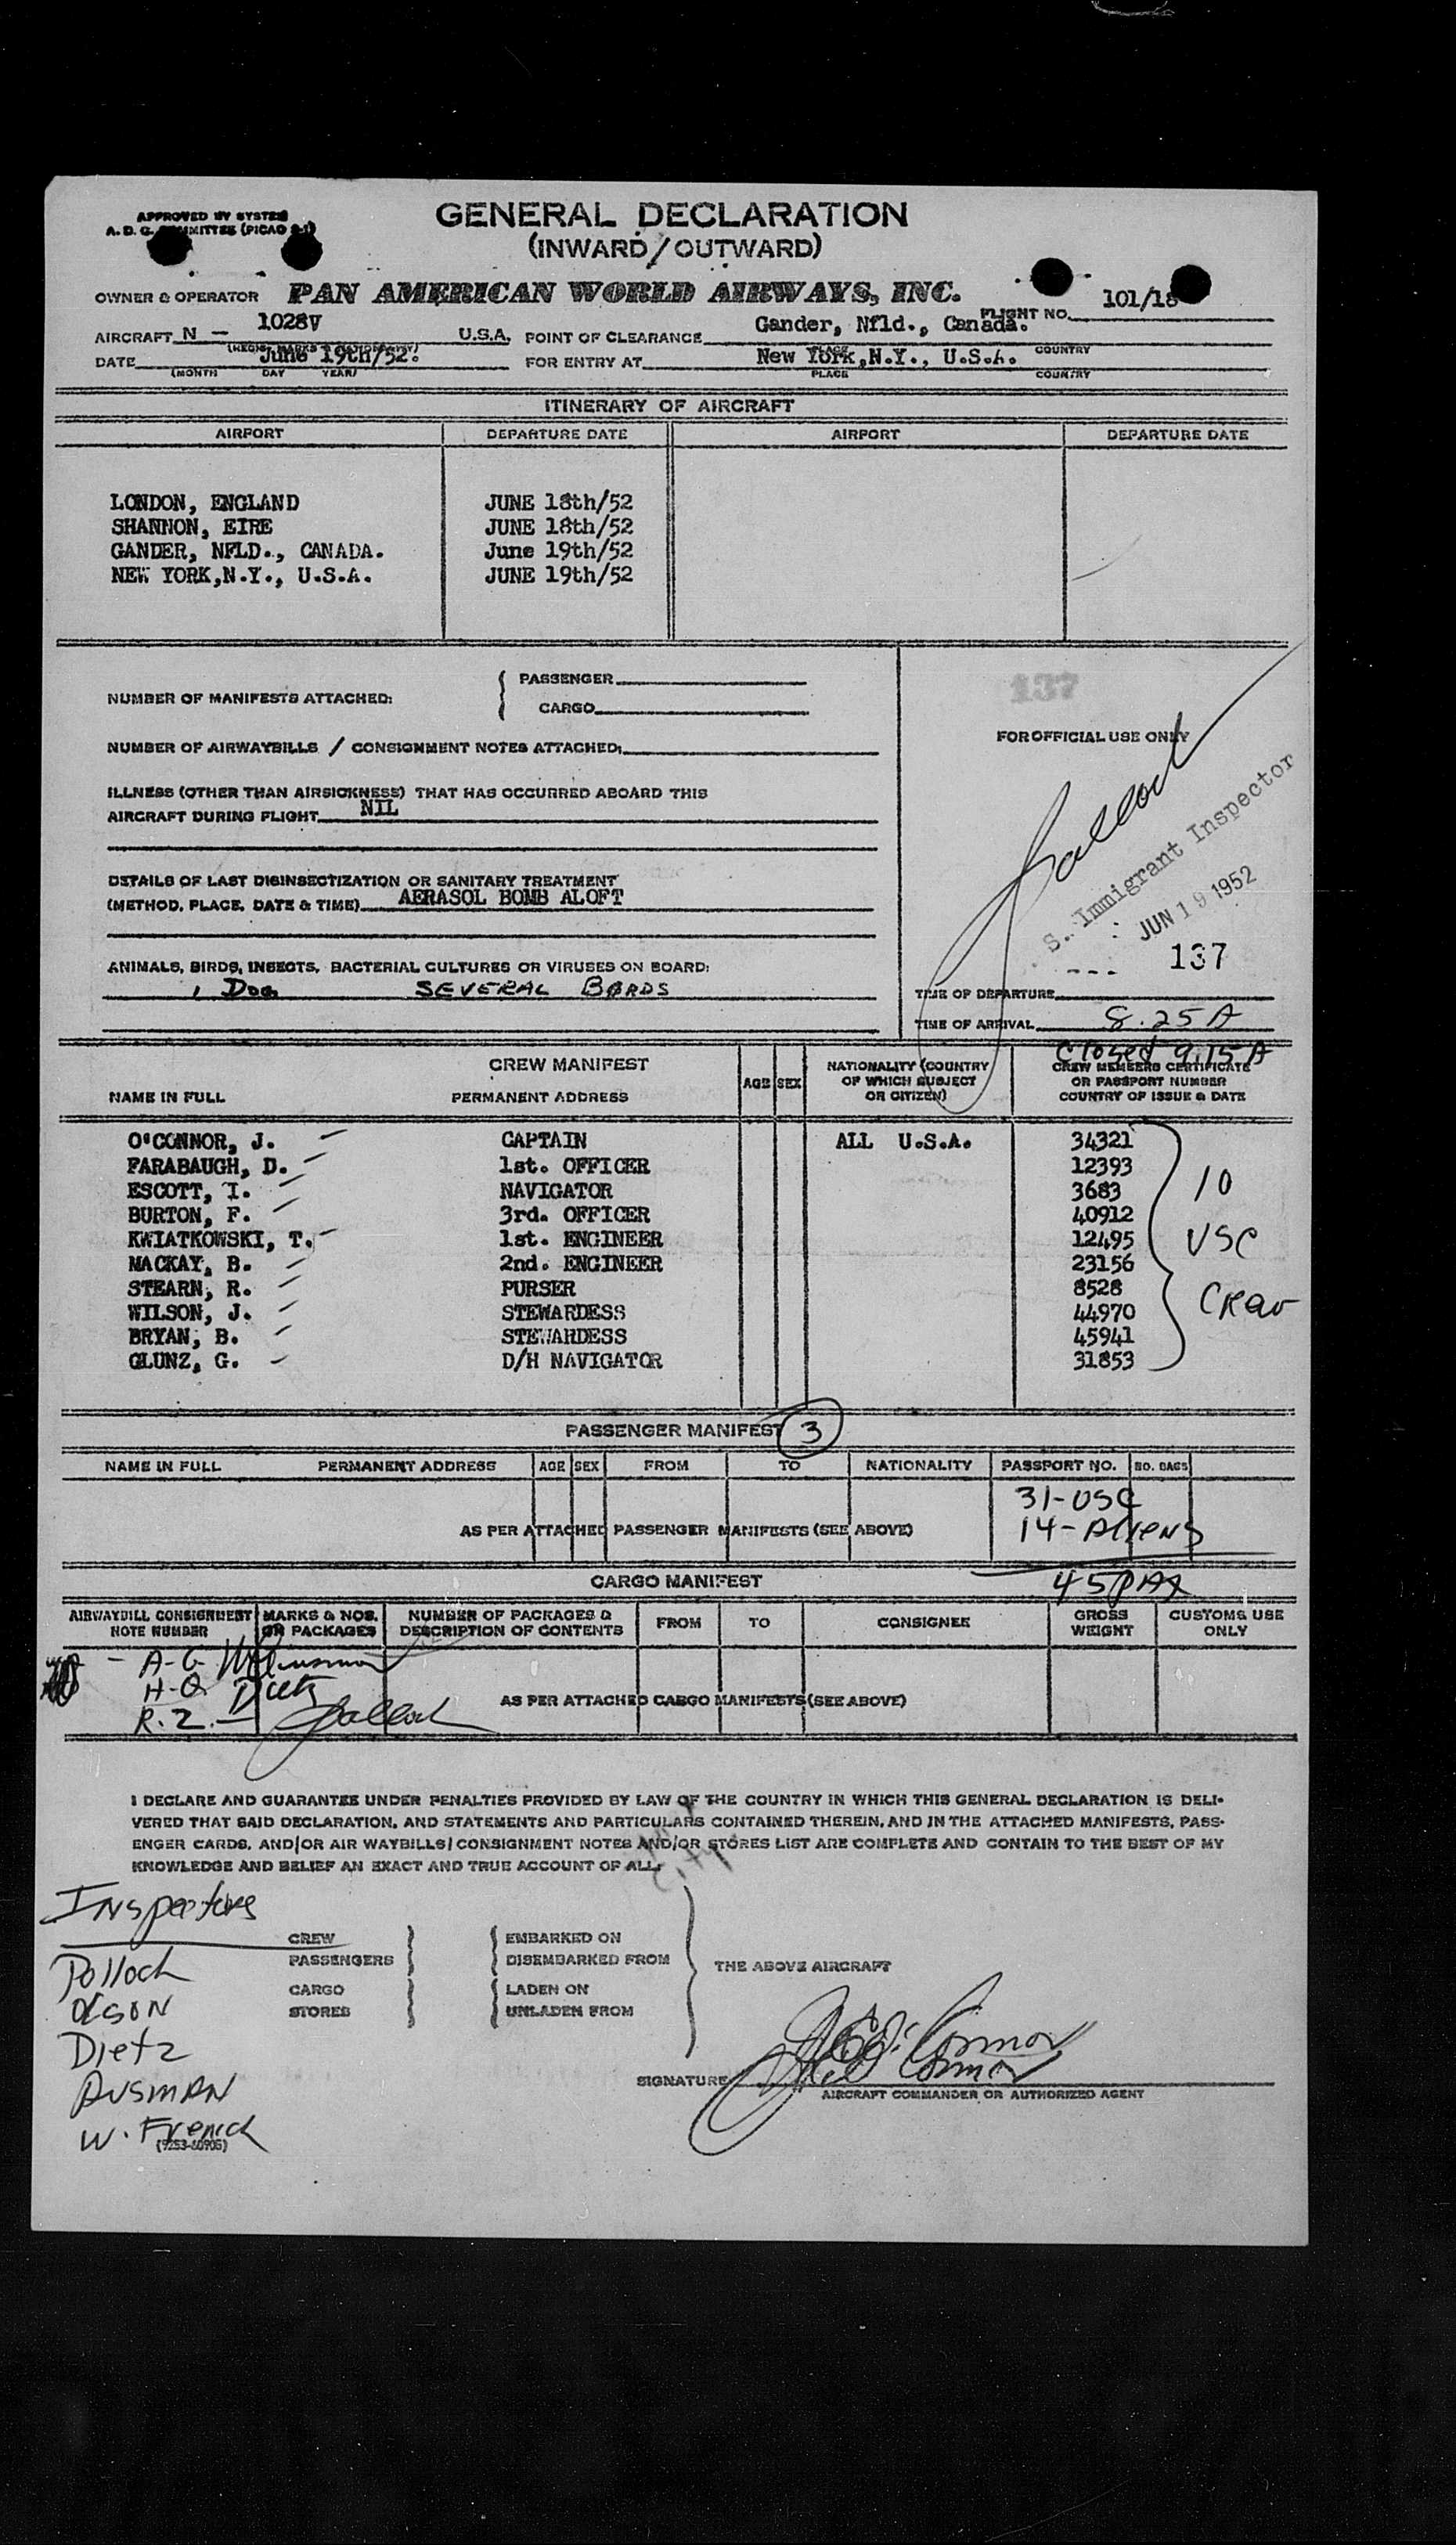 APPROVED BY SYSTEM
GENERAL DECLARATION
(INWARD/OUTWARD)
OWNER & OPERATOR PAN AMERICAN WORLD AIRWAYS, INC.
FLIGHT NO. 101/18
AIRCRAFT N - 1028V U.S.A. POINT OF CLEARANCE Gander, Nfld., Canada.
PLACE COUNTRY
DATE June 19th/52. FOR ENTRY AT New York,N.Y., U.S.A.
(MONTH DAY YEAR) PLACE COUNTRY
ITINERARY OF AIRCRAFT
AIRPORT DEPARTURE DATE AIRPORT DEPARTURE DATE
LONDON, ENGLAND JUNE 18th/52
SHANNON, EIRE JUNE 18th/52
GANDER, NFLD., CANADA. June 19th/52
NEW YORK,N.Y., U.S.A. JUNE 19th/52
NUMBER OF MANIFESTS ATTACHED: PASSENGER
CARGO
137
FOR OFFICIAL USE ONLY
NUMBER OF AIRWAYBILLS / CONSIGNMENT NOTES ATTACHED:
ILLNESS (OTHER THAN AIRSICKNESS) THAT HAS OCCURRED ABOARD THIS
AIRCRAFT DURING FLIGHT NIL
DETAILS OF LAST DISINSECTIZATION OR SANITARY TREATMENT
(METHOD, PLACE, DATE & TIME) AERASOL BOMB ALOFT
S. Immigrant Inspector
JUN 19 1952
137
ANIMALS, BIRDS, INSECTS, BACTERIAL CULTURES OR VIRUSES ON BOARD:
1 DOG SEVERAL BIRDS
TIME OF DEPARTURE
TIME OF ARRIVAL 8.25 A
Closed 9.15 A
CREW MANIFEST
NAME IN FULL PERMANENT ADDRESS AGE SEX NATIONALITY (COUNTRY OF WHICH SUBJECT OR CITIZEN) CREW MEMBERS CERTIFICATE OR PASSPORT NUMBER COUNTRY OF ISSUE & DATE
O'CONNOR, J. CAPTAIN ALL U.S.A. 34321
FARABAUGH, D. 1st. OFFICER 12393
ESCOTT, I. NAVIGATOR 3683
BURTON, F. 3rd. OFFICER 40912
KWIATKOWSKI, T. 1st. ENGINEER 12495
MACKAY, B. 2nd. ENGINEER 23156
STEARN, R. PURSER 8528
WILSON, J. STEWARDESS 44970
BRYAN, B. STEWARDESS 45941
GLUNZ, G. D/H NAVIGATOR 31853
10
USC
Crew
PASSENGER MANIFEST 3
NAME IN FULL PERMANENT ADDRESS AGE SEX FROM TO NATIONALITY PASSPORT NO. NO. BAGS
31-USC
14-Aliens
AS PER ATTACHED PASSENGER MANIFESTS (SEE ABOVE)
45 PAX
CARGO MANIFEST
AIRWAYBILL CONSIGNMENT NOTE NUMBER MARKS & NOS. OR PACKAGES NUMBER OF PACKAGES & DESCRIPTION OF CONTENTS FROM TO CONSIGNEE GROSS WEIGHT CUSTOMS USE ONLY
A-G
H-Q Dietz
R-Z - Pollock
AS PER ATTACHED CARGO MANIFESTS (SEE ABOVE)
I DECLARE AND GUARANTEE UNDER PENALTIES PROVIDED BY LAW OF THE COUNTRY IN WHICH THIS GENERAL DECLARATION IS DELI-
VERED THAT SAID DECLARATION, AND STATEMENTS AND PARTICULARS CONTAINED THEREIN, AND IN THE ATTACHED MANIFESTS, PASS-
ENGER CARDS, AND/OR AIR WAYBILLS/CONSIGNMENT NOTES AND/OR STORES LIST ARE COMPLETE AND CONTAIN TO THE BEST OF MY
KNOWLEDGE AND BELIEF AN EXACT AND TRUE ACCOUNT OF ALL,
Inspectors
CREW EMBARKED ON
PASSENGERS DISEMBARKED FROM THE ABOVE AIRCRAFT
CARGO LADEN ON
STORES UNLADEN FROM
Pollock
Olson
Dietz
AUSMAN
W. French
SIGNATURE
AIRCRAFT COMMANDER OR AUTHORIZED AGENT